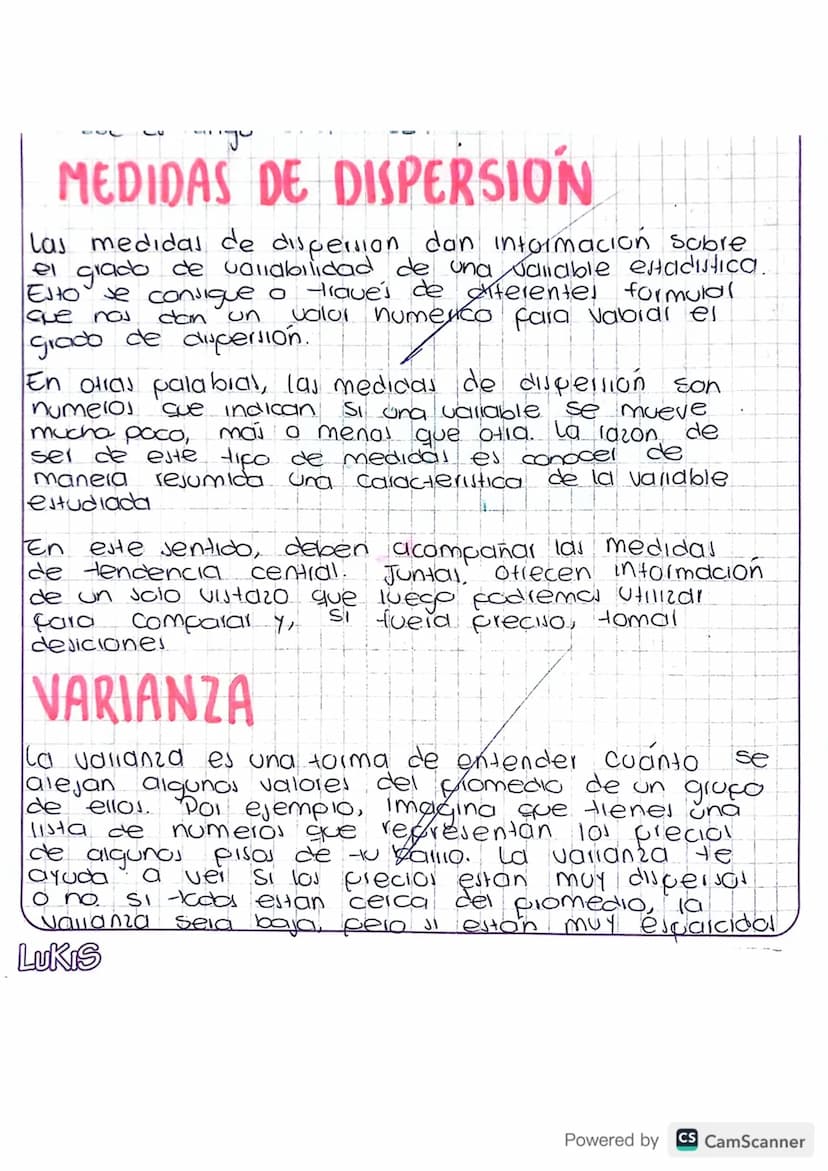 MEDIDAS DE DISPERSIÓN
Las medidas de dispersion dan información sobre
el grado de variabilidad de una variable estadistica.
Esto se consigue a través de diferentes formulas
que nos dan un valor numerico para el
grado de dispersión.
En otras palabras, las medidas de dispersión son
numeros que indican si una variable se mueve
mucho poco, más o menos que otra. La razon de
ser de este tipo de medidas es conocer de
manera resumida una caracteristica de la variable
estudiada
En este sentido, deben acompañar las medidas
de tendencia central. Juntas, ofrecen información
de un solo vistazo que luego podremos utilizar
para comparar y, si fuera preciso, tomar
desiciones
VARIANZA
La varianza es una forma de entender cuánto se
alejan algunos valores del promedio de un grupo
de ellos. Por ejemplo, imagina que tienes una
lista de numeros que representan los precios
de algunos pisos de tu barrio. La varianza te
ayuda a ver si los precios están muy dispersos
o no. si todos estan cerca del promedio, la
varianza sera baja, pero si estan muy esparcidos
LUKIS
Powered by CS CamScanner